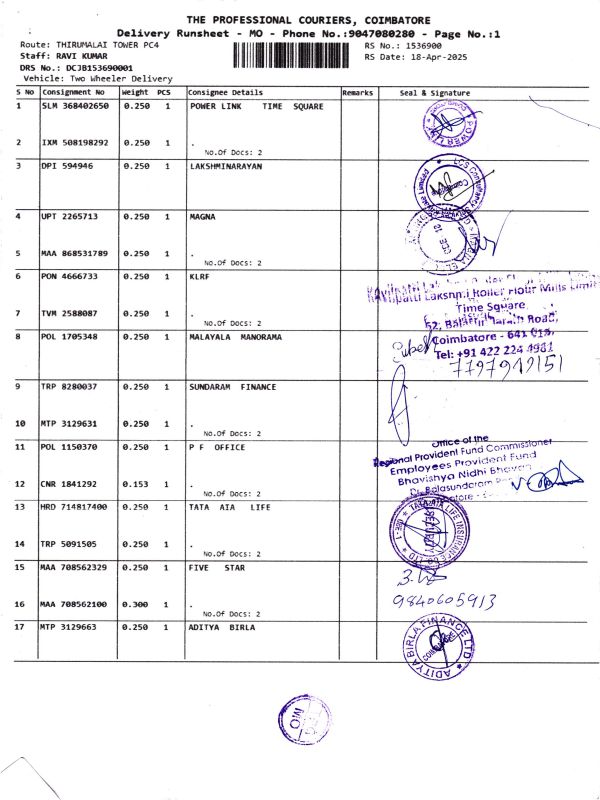 THE PROFESSIONAL COURIERS, COIMBATORE
Delivery Runsheet - MO - Phone No.:9047080280 - Page No.:1
Route: THIRUMALAI TOWER PC4 RS No.: 1536900
Staff: RAVI KUMAR RS Date: 18-Apr-2025
DRS No.: DCJB153690001
Vehicle: Two Wheeler Delivery
S No Consignment No Weight PCS Consignee Details Remarks Seal & Signature
1 SLM 368402650 0.250 1 POWER LINK TIME SQUARE
POWER LINK
2 IXM 508198292 0.250 1 .
No.Of Docs: 2
3 DPI 594946 0.250 1 LAKSHMINARAYAN
LCS Consultancy
Limited
4 UPT 2265713 0.250 1 MAGNA
5 MAA 868531789 0.250 1 .
No.Of Docs: 2
6 PON 4666733 0.250 1 KLRF
Lakshmi Roller Flour Mills Limit
Time Square,
7 TVM 2588087 0.250 1 .
No.Of Docs: 2
52, Road,
8 POL 1705348 0.250 1 MALAYALA MANORAMA
Coimbatore - 641 018.
Tel: +91 422 224 4981
9 TRP 8280037 0.250 1 SUNDARAM FINANCE
10 MTP 3129631 0.250 1 .
No.Of Docs: 2
11 POL 1150370 0.250 1 P F OFFICE
Office of the
Regional Provident Fund Commissioner
Employees Provident Fund
Bhavishya Nidhi Bhavan
12 CNR 1841292 0.153 1 .
No.Of Docs: 2
Dr. Balasundaram
13 HRD 714817400 0.250 1 TATA AIA LIFE
TATA AIA LIFE INSURANCE CO LTD
14 TRP 5091505 0.250 1 .
No.Of Docs: 2
15 MAA 708562329 0.250 1 FIVE STAR
16 MAA 708562100 0.300 1 .
No.Of Docs: 2
9840605913
17 MTP 3129663 0.250 1 ADITYA BIRLA
ADITYA BIRLA FINANCE LTD
COIMBATORE
MO